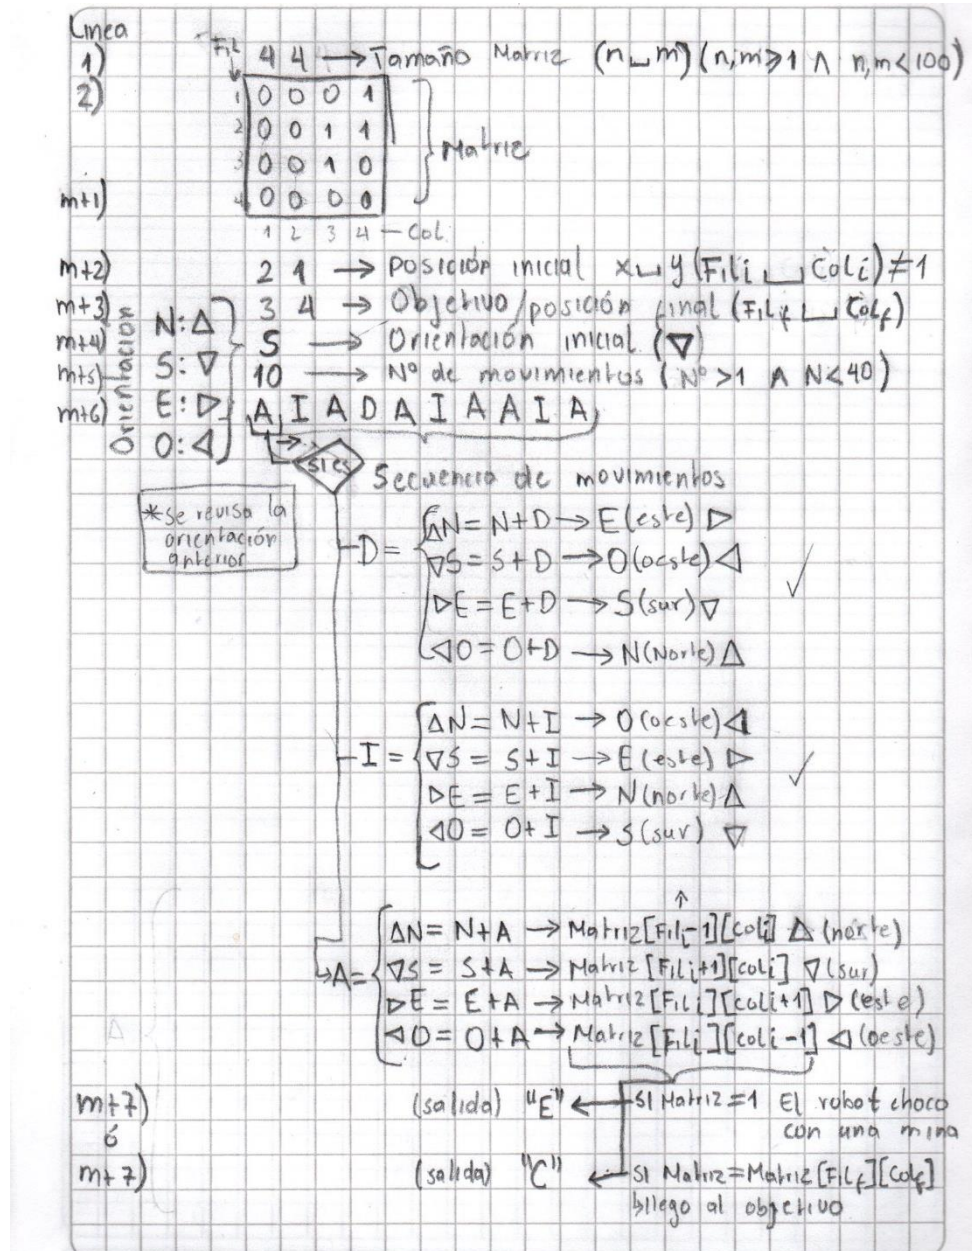 Línea
1) Fil 4 4 → Tamaño Matriz (n␣m) (n,m⩾1 ∧ n,m<100)
2) 1 0 0 0 1
2 0 0 1 1
3 0 0 1 0 } Matriz
m+1) 4 0 0 0 0
1 2 3 4 — Col
m+2) 2 1 → posición inicial x␣y (Fili ␣ Coli) ≠ 1
m+3) 3 4 → Objetivo/posición final (Filf ␣ Colf)
m+4) S → Orientación inicial (▽)
m+5) 10 → Nº de movimientos (Nº >1 ∧ N<40)
m+6) A I A D A I A A I A
Orientación
N: △
S: ▽
E: ▷
O: ◁
SI es
Secuencia de movimientos
*se revisa la
orientación
anterior
D = { △N = N+D → E (este) ▷
▽S = S+D → O (oeste) ◁ ✓
▷E = E+D → S (sur) ▽
◁O = O+D → N (Norte) △
I = { △N = N+I → O (oeste) ◁
▽S = S+I → E (este) ▷ ✓
▷E = E+I → N (norte) △
◁O = O+I → S (sur) ▽
↑
A = { △N = N+A → Matriz [Fili-1][coli] △ (norte)
▽S = S+A → Matriz [Fili+1][coli] ▽ (sur)
▷E = E+A → Matriz [Fili][coli+1] ▷ (este)
◁O = O+A → Matriz [Fili][coli-1] ◁ (oeste)
m+7) (salida) "E" ← SI Matriz=1 El robot choco
ó con una mina
m+7) (salida) "C" ← SI Matriz=Matriz[Filf][Colf]
llego al objetivo